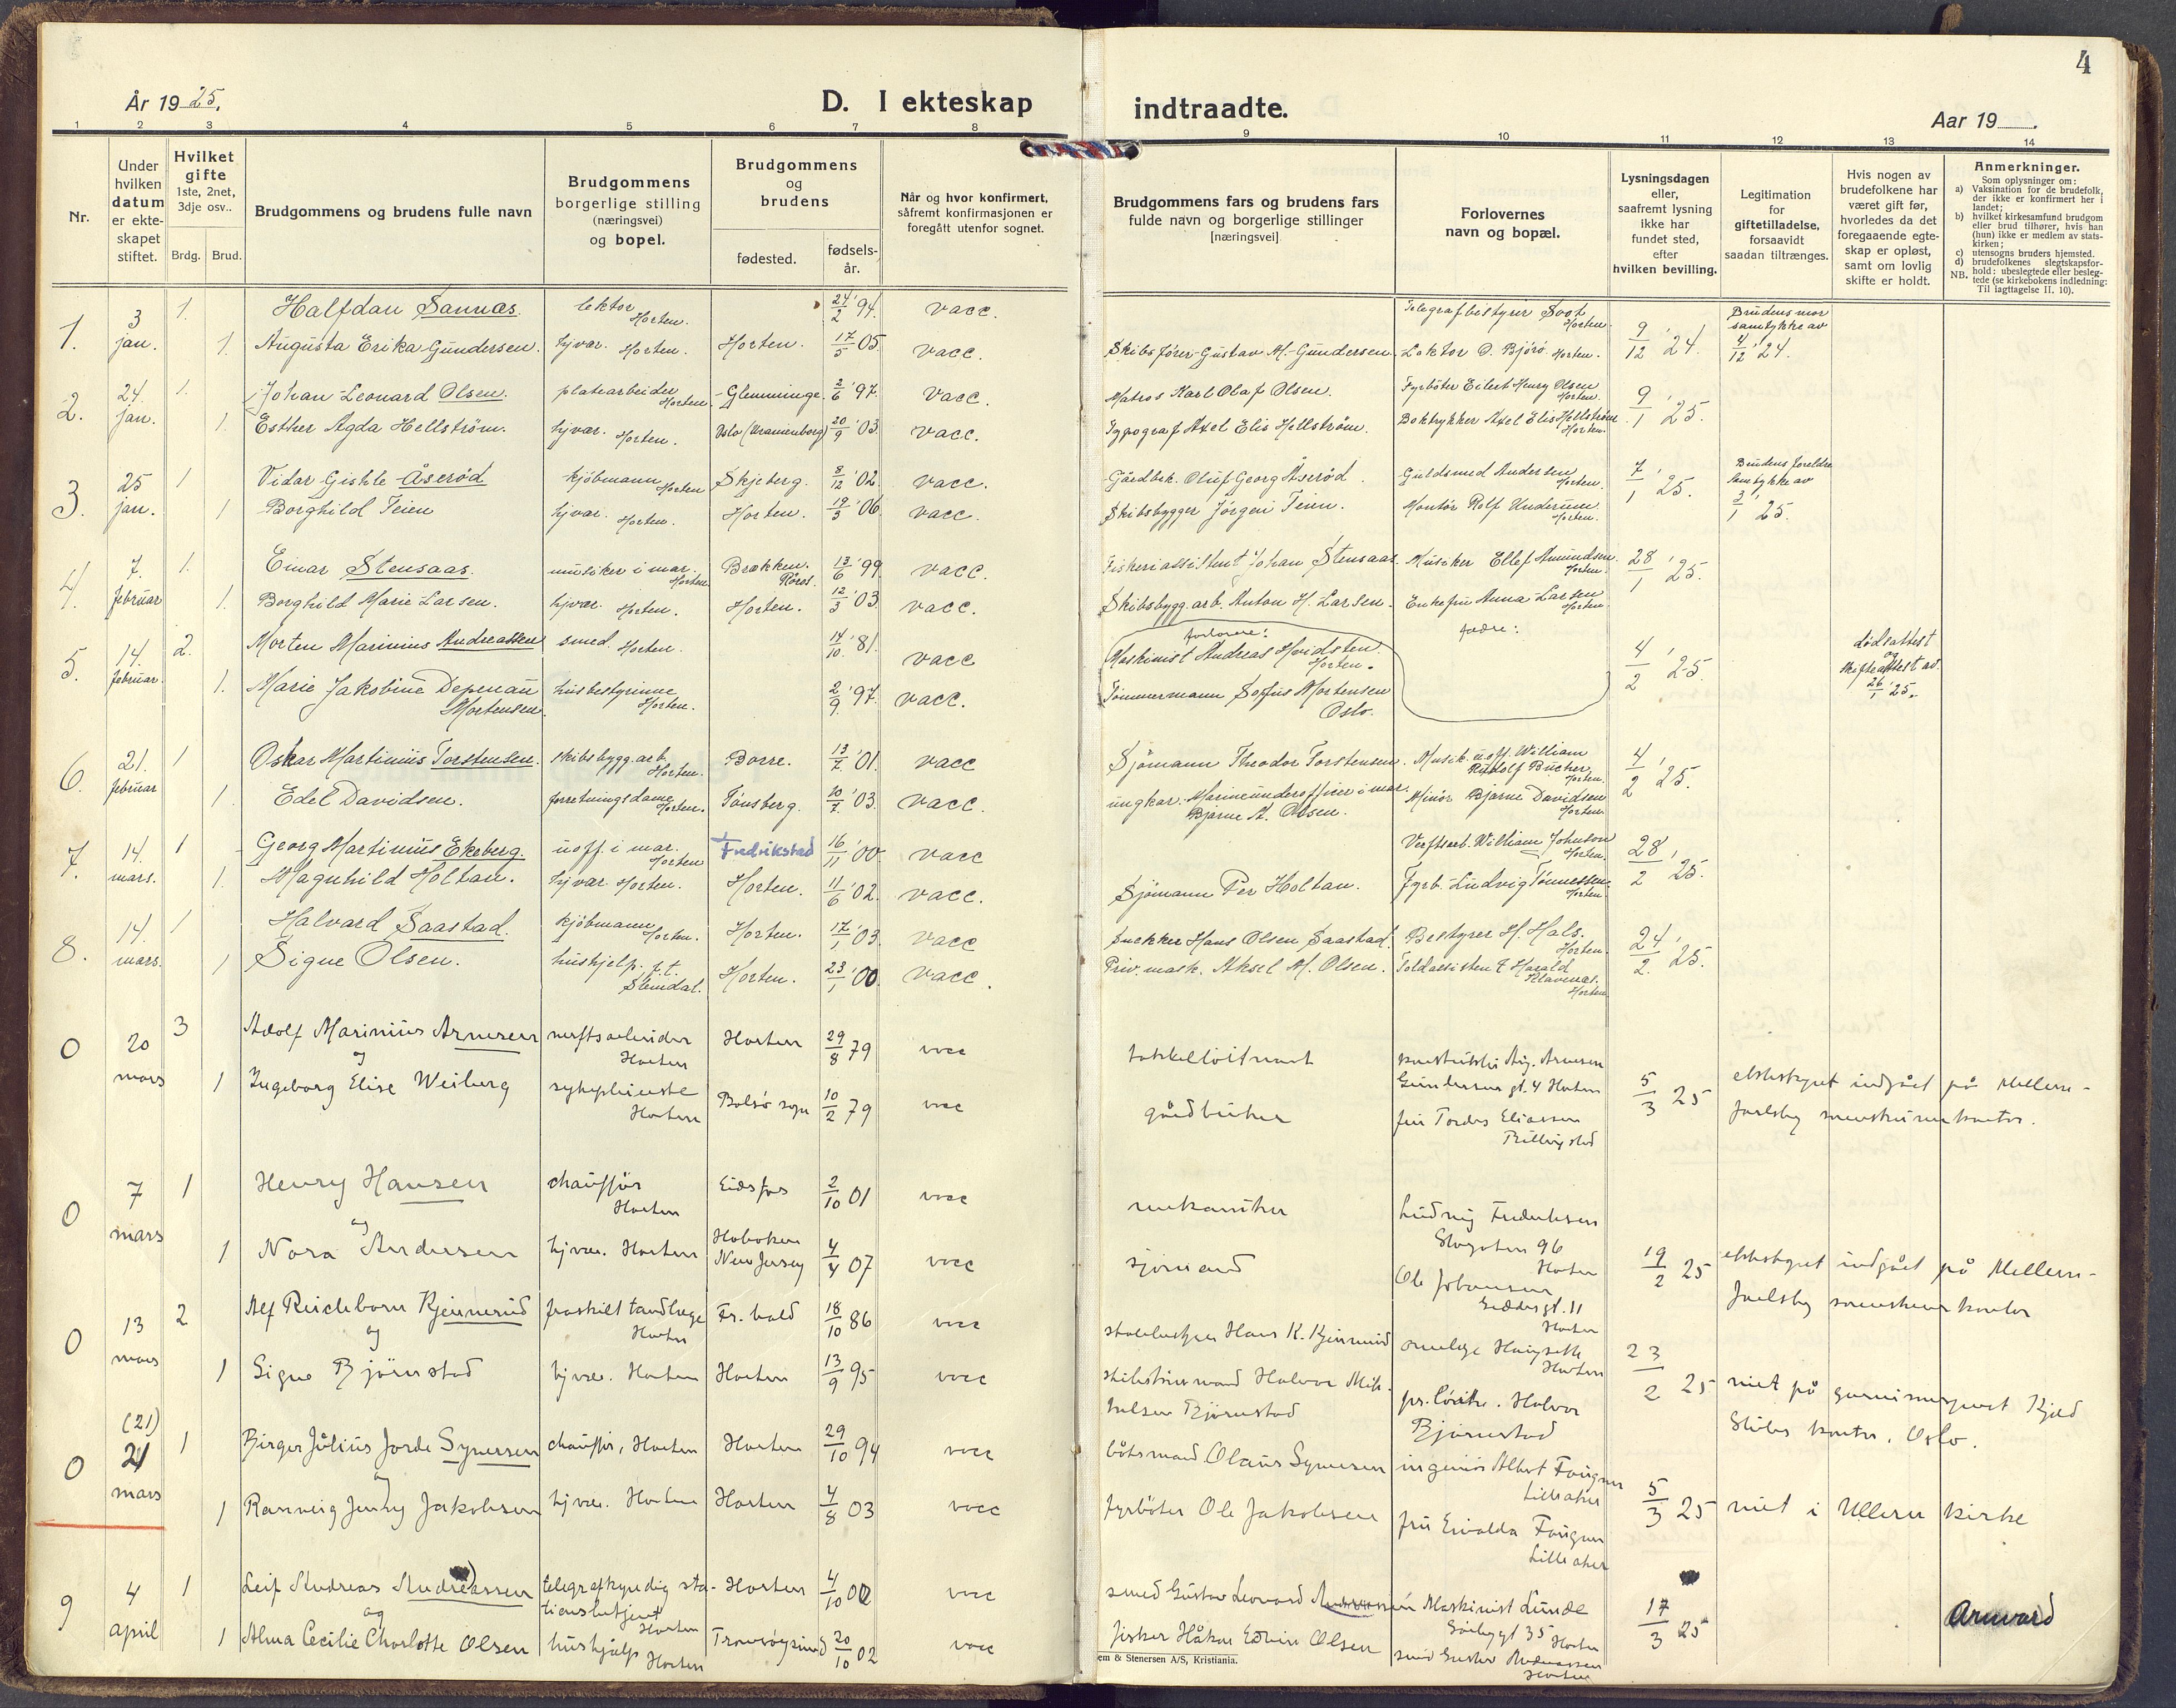 4
År 1925.
D. I ekteskap
indtraadte.
Aar 19
1 2 3 4 5 6 7 8 9 10 11 12 13 14
Nr.
Under hvilken datum er ekteskapet stiftet.
Hvilket gifte 1ste, 2net, 3dje osv..
Brdg. Brud.
Brudgommens og brudens fulle navn
Brudgommens borgerlige stilling (næringsvei) og bopel.
Brudgommens og brudens
fødested.
fødsels-år.
Når og hvor konfirmert, såfremt konfirmasjonen er foregått utenfor sognet.
Brudgommens fars og brudens fars fulde navn og borgerlige stillinger [næringsvei]
Forlovernes navn og bopæl.
Lysningsdagen eller, saafremt lysning ikke har fundet sted, efter hvilken bevilling.
Legitimation for giftetilladelse, forsaavidt saadan tiltrænges.
Hvis nogen av brudefolkene har været gift før, hvorledes da det foregaaende egteskap er opløst, samt om lovlig skifte er holdt.
Anmerkninger.
Som oplysninger om:
a) Vaksination for de brudefolk, der ikke er konfirmert her i landet;
b) hvilket kirkesamfund brudgom eller brud tilhører, hvis han (hun) ikke er medlem av statskirken;
c) utensogns bruders hjemsted.
d) brudefolkenes slegtskapsforhold: ubeslegtede eller beslegtede (se kirkebokens indledning:
NB. Til iagttagelse II. 10).
1. 3 jan. 1. Halfdan Sannæs. lektor Horten. 24/2 '94. vacc. Telegrafbestyrer Soot Horten. 9/12 '24. Brudens mor samtykke av 4/12 '24.
1. Augusta Erika Gundersen. hjvær. Horten. Horten. 17/5 05. vacc. Skibsfører Gustav M. Gundersen. Lektor D. Bjørø Horten.
2. 24. jan. 1. Johan Leonard Olsen. platearbeider Horten. Glemminge. 2/6 '97. vacc. Matros Karl Olaf Olsen. Fyrbøter Eilert Henry Olsen Horten. 9/1 '25.
1. Esther Agda Hellström. hjvær. Horten. Oslo (Uranienborg) 20/9 '03. vacc. Typograf Axel Elis Hellström. Boktrykker Axel Elis Hellström Horten.
3. 25 jan. 1 Vidar Gishle Åserød kjøbmann Horten Skjeberg. 8/12 '02. vacc. Gårdbek. Oluf Georg Åserød. Guldsmed Andersen Horten. 7/1 '25. Brudens foreldre samtykke av 3/1 '25.
1 Borghild Teien hjvær. Horten. Horten. 19/3 '06. vacc. Skibsbygger Jørgen Teien. Montør Rolf Andersen Horten.
4. 7. februar 1. Einar Stensaas. musiker i mar. Horten Brækken. Røros. 13/6 '99. vacc. Fiskeriassistent Johan Stensaas. Musiker Ellef Amundsen. Horten. 28/1 '25.
1. Borghild Marie Larsen. hjvær. Horten. Horten. 12/3 '03. vacc. Skibsbygg.arb. Anton H. Larsen. Enkefru Anna Larsen Horten.
5. 14. februar. 2. Morten Marinius Andreassen smed. Horten. 14/10 '81. vacc forlovere: Maskinist Andreas Hvidsten Horten. fædre: 4/2 '25. dødsattest og skifteattest av 26/1 '25.
1. Marie Jakobine Depenau Mortensen. husbestyrinne Horten. 2/9 '97. vacc. Tømmermann Sofus Mortensen Oslo.
6. 21. februar 1 Oskar Martinius Torstensen. skibsbygg.arb. Horten. Borre. 13/7 '01. vacc Sjømann Theodor Torstensen. Musik.uoff. William Rudolf Bücher Horten. 4/2 '25.
1. Edel Davidsen. forretningsdame Horten. Tønsberg. 20/7 '03. vacc. ungkar. Marineunderofficer i mar. Bjarne A. Olsen. Minør Bjarne Davidsen Horten.
7. 14. mars. 1 Georg Martinius Ekeberg. uoff. i mar. Horten Fredrikstad 16/11 '00. vacc Verftsarb. William Johnson Horten. 28/2 '25.
1. Magnhild Holtan. hjvær. Horten. Horten. 11/6 '02. vacc. Sjømann Per Holtan. Fyrb. Ludvig Tønnessen. Horten.
8. 14. mars. 1 Halvard Saastad. kjøbmann Horten. Horten. 17/1 '03. vacc Snekker Hans Olsen Saastad. Bestyrer H. Hals. Horten. 24/2. '25.
1 Signe Olsen. hushjelp. p.t. Slemdal. Horten. 23/1 '00. vacc. Priv. mask. Aksel M. Olsen. Toldassistent Harald Klavenes. Horten
0 20 mars 3 Adolf Marinius Arnesen verftsarbeider Horten Horten 29/8 79 vacc takkelløitnant Aug. Arnesen Gundersens gt. 4 Horten 5/3 25 ekteskapet indgået på Mellem-
og
1 Ingeborg Elise Weiberg sykepleierske Horten Bolsø sogn 10/2 79 vacc gårdbruker fru Tordis Eliassen Billingstad Jarlsberg sorenskriverkontor.
0 7 mars 1 Henry Hansen chauffør Horten Eidsfos 2/10 01 vacc mekaniker Ludvig Frederiksen Storgaten 96 Horten 19/2 25 ekteskapet indgået på Mellem-
og
1 Nora Andersen hjvær. Horten Hoboken New Jersey 4/4 07 vacc sjømand Ole Johansen gt. 11 Horten Jarlsberg sorenskriverkontor
0 13 mars 2 Alf Reichborn Kjennerud fraskilt tandlæge Horten Fr.hald 18/10 86 vacc Hans K. Kjennerud Horten 23/2 25 viet på
og
1 Signe Bjørnstad hjvær. Horten Horten 13/9 95 vacc skibstømmermand Halvor Mikkelsen Bjørnstad Halvor Bjørnstad kontor, Oslo.
(21)
0 21 mars 1 Birger Julius Jorde Synersen chauffør, Horten Horten 29/10 94 vacc båtsmand Olaus Synersen ingeniør Albert Fougner Lilleaker 5/3 25 viet i Ullern kirke
og
1 Rannveig Jenny Jakobsen hjvær. Horten Horten 4/8 03 vacc fyrbøter Ole Jakobsen fru Fougner Lilleaker
9 4 april 1 Leif Andreas Andreassen telegrafkyndig stationsbetjent Horten Horten 4/10 00 vacc smed Gustav Leonard Andreassen Maskinist Lunde 35 Horten 17/3 25 Arnvard
og
1 Alma Cecilie Charlotte Olsen hushjælp Horten Tromsøysund 20/10 02 vacc fisker Håkon Edvin Olsen smed Gustav Andreassen Horten
em & Stenersen A/S, Kristiania.